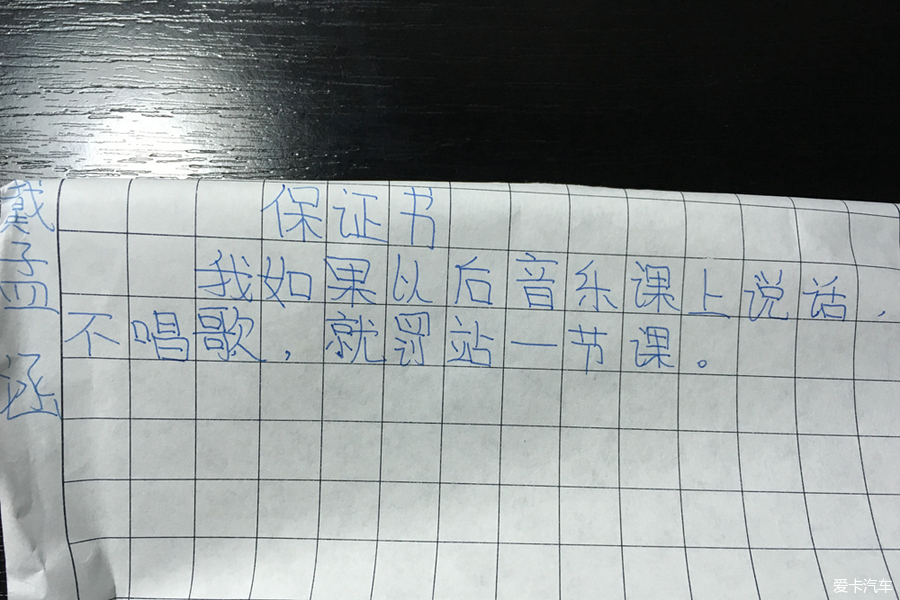 保证书
我如果以后音乐课上说话，
不唱歌，就罚站一节课。
戴孟涵
爱卡汽车